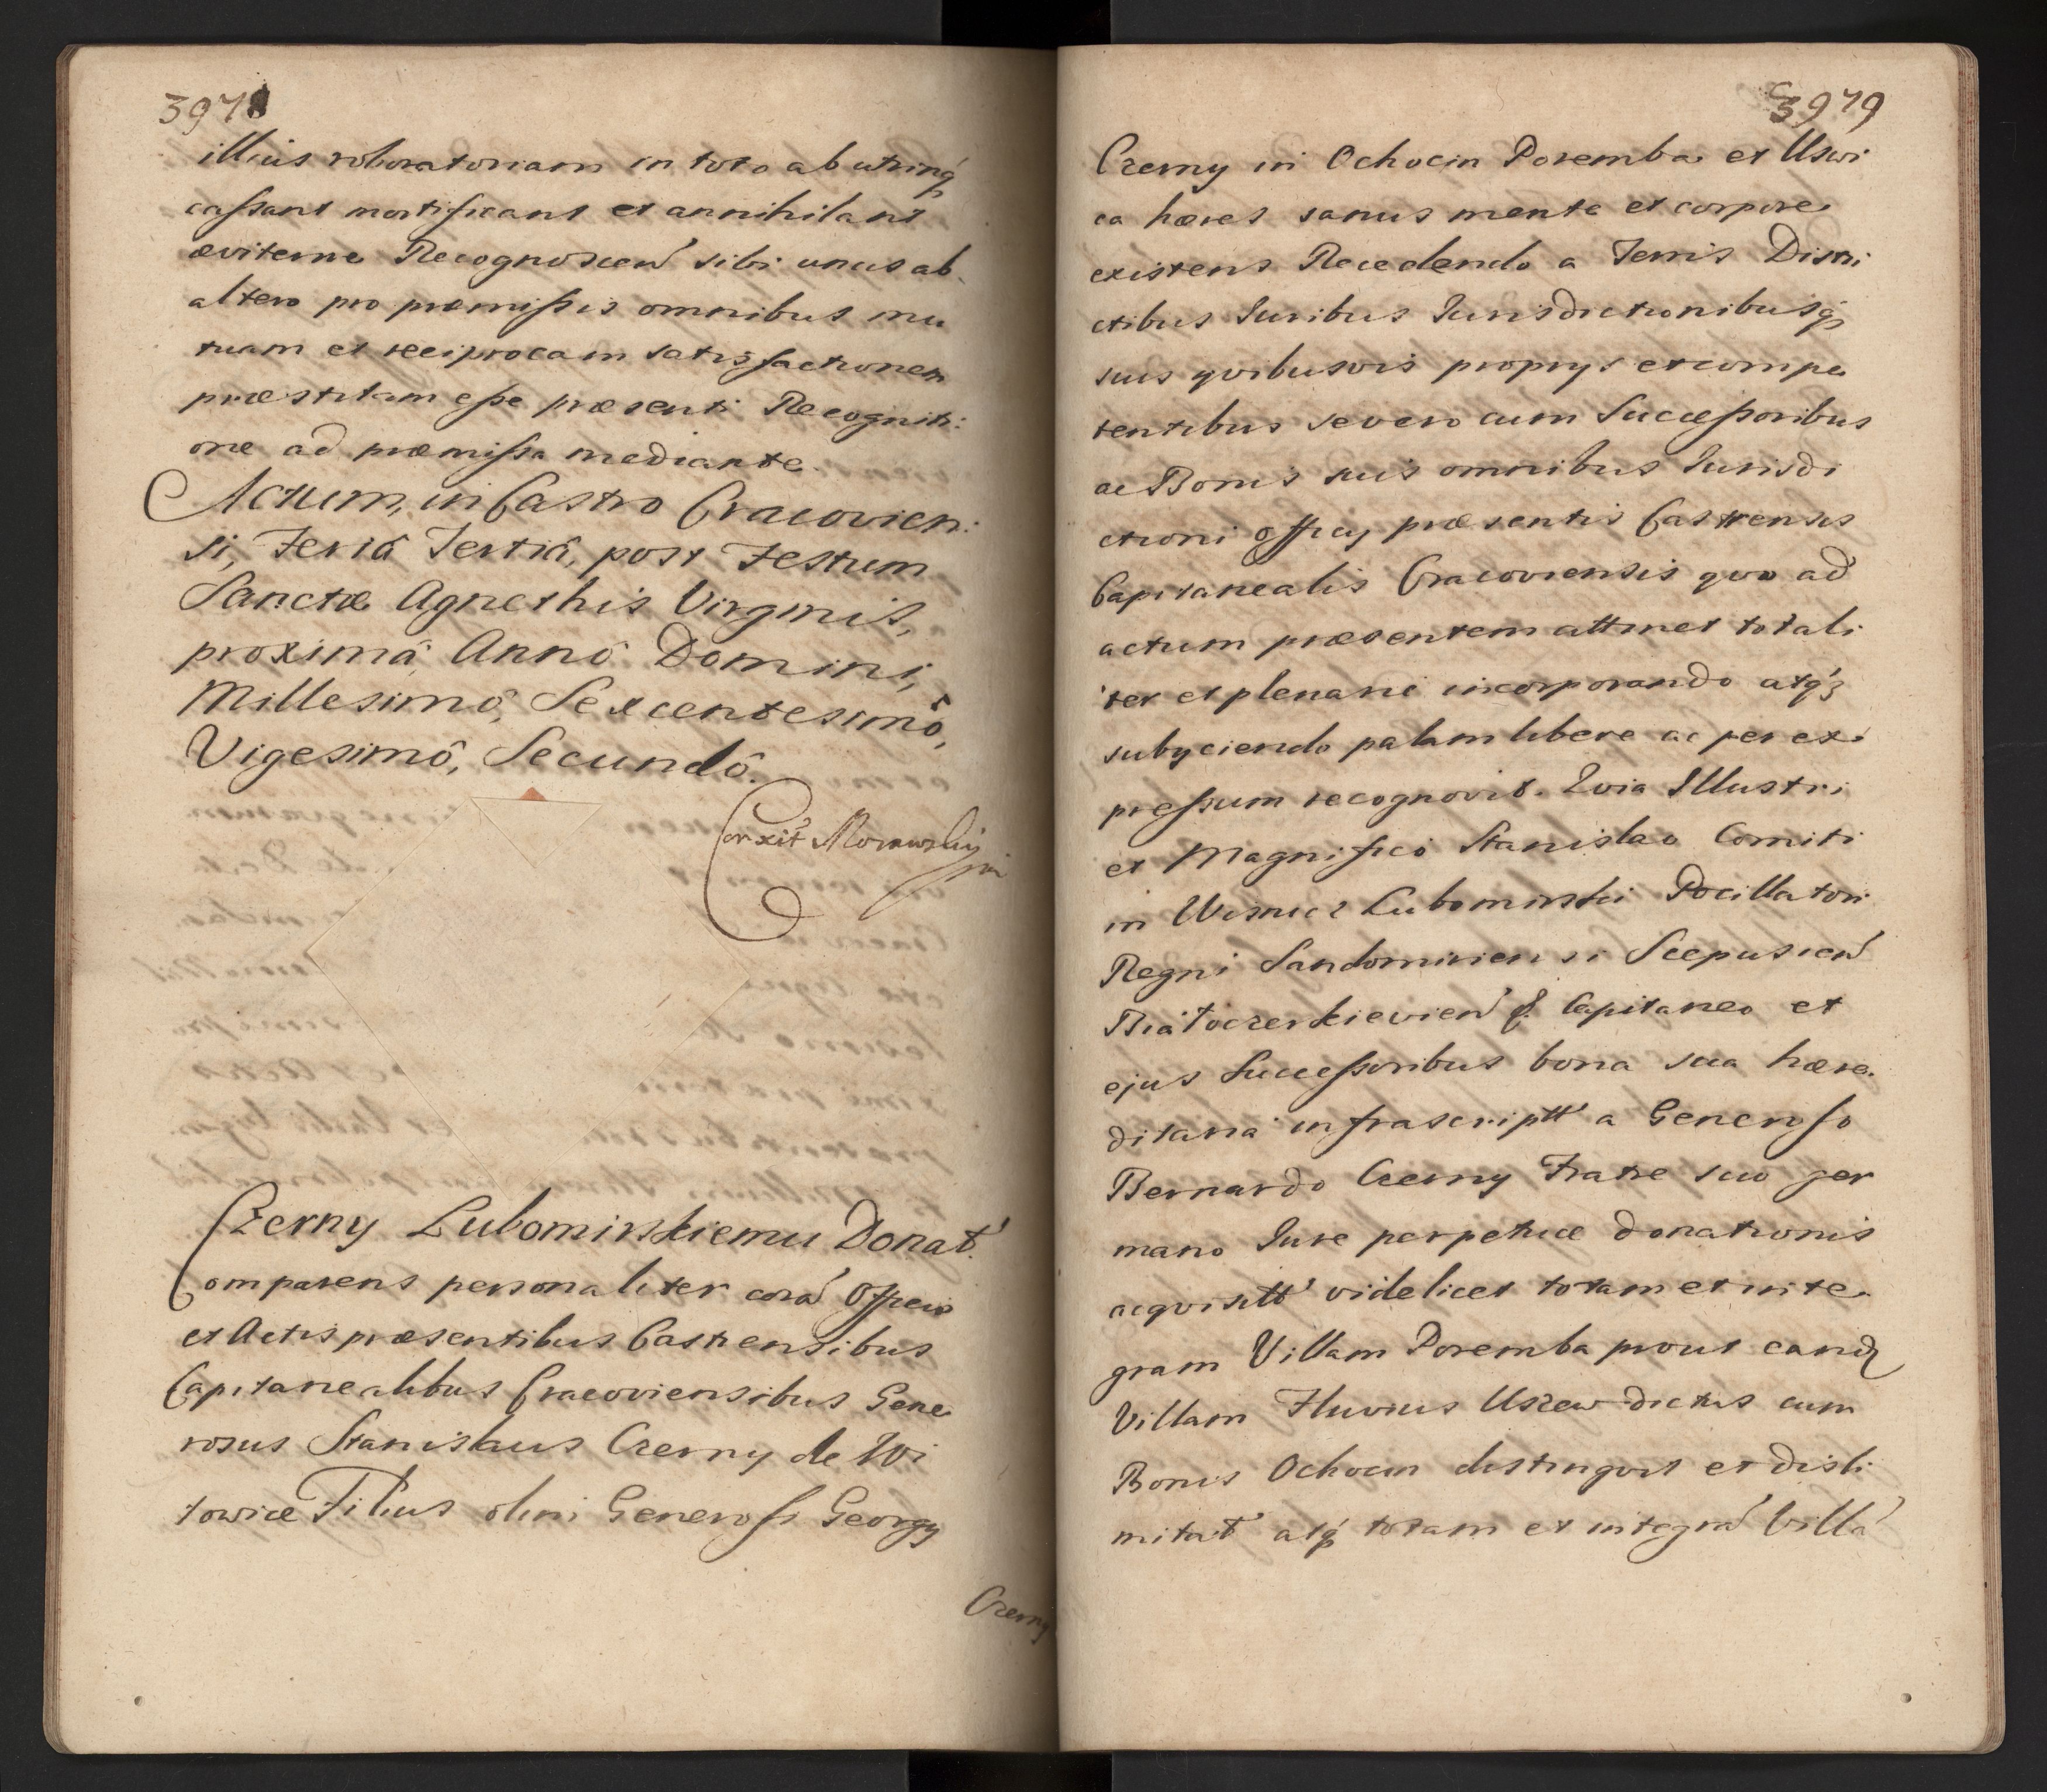 3978
illius roboratoriam in toto ab utrinq́
caſsant mortificant et annihilant
æviterne Recognoscen̄ sibi unus ab
altero pro præmiſsis omnibus mu
tuam et reciprocam satisfactionem
præstitam eſse præsenti Recogniti:
one ad præmiſsa mediante.
Actum, in Castro Cracovien:
si, Feriâ Tertiâ, post Festum
Sanctæ Agnethis Virginis,
proximâ Annô Domini,
Millesimô, Sexcentesimô,
Vigesimô, Secundô.
Corxit Morawskij
Czerny Lubomirskiemu Donat.
Comparens personaliter corā Officio
et Actis præsentibus Castrensibus
Capitanealibus Cracoviensibus Gene
rosus Stanislaus Czerny de Wi
towice Filius olim Generosi Georgy
Czerny
3979
Czerny in Ochocin Poremba et Uswi
ca hæres sanus mente et corpore
existens Recedendo a Terris Distri
ctibus Iuribus Iurisdictionibusq́
suis qvibusvis proprys et compe
tentibus se vero cum Succeſsoribus
ac Bonis suis omnibus Iurisdi
ctioni Officy præsentis Castrensis
Capitanealis Cracoviensis qvo ad
actum præsentem attinet totali
ter et plenarie incorporando atq́ꝫ
subyciendo palam libere ac per ex
preſsum recognovit. Qvia Illustri
et Magnifico Stanislao Comiti
in Wisnicz Lubomirski Pocillatori
Regni Sandomirien si Scepusien̄
Białoczerkievien̄ &. Capitaneo et
ejus Succeſsoribus bona sua hære
ditaria infrascriptt̄ a Generoſo
Bernardo Czerny Fratre suo ger
mano Iure perpetuæ donationis
acqvisitt̄ videlicet totam et inte
gram Villam Poremba prout eand
Villam Fluvius Uszew dictus cum
Bonis Ochocin distingvit et disli
mitat atq́ totam et integrā Villā